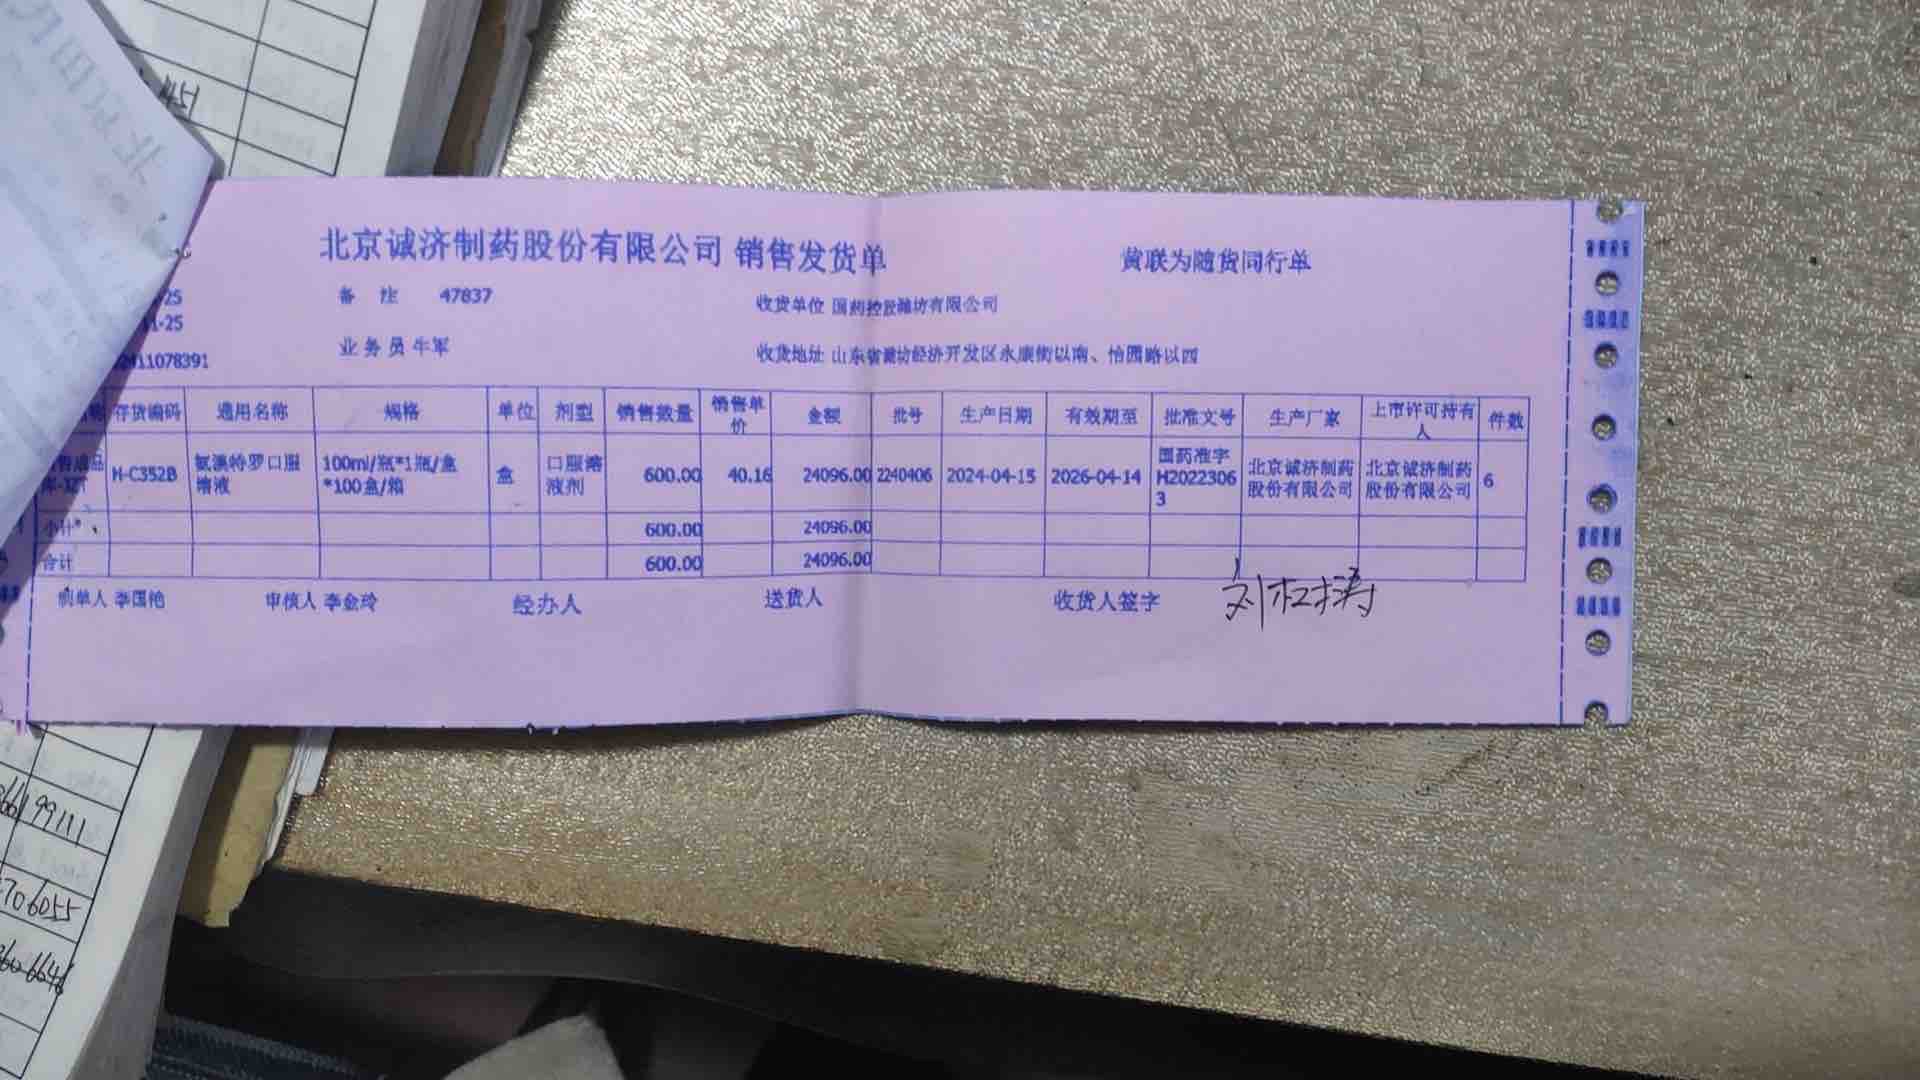 北京诚济制药股份有限公司 销售发货单
黄联为随货同行单
-25
备 注 47837
收货单位 国药控股潍坊有限公司
11-25
业务员 牛军
收货地址 山东省潍坊经济开发区永康街以南、怡园路以西
2411078391
存货编码 通用名称 规格 单位 剂型 销售数量 销售单价 金额 批号 生产日期 有效期至 批准文号 生产厂家 上市许可持有人 件数
H-C352B 氨溴特罗口服溶液 100ml/瓶*1瓶/盒*100盒/箱 盒 口服溶液剂 600.00 40.16 24096.00 2240406 2024-04-15 2026-04-14 国药准字H20223063 北京诚济制药股份有限公司 北京诚济制药股份有限公司 6
小计 600.00 24096.00
合计 600.00 24096.00
制单人 李国艳 审核人 李金玲 经办人 送货人 收货人签字
99111
706055
6646